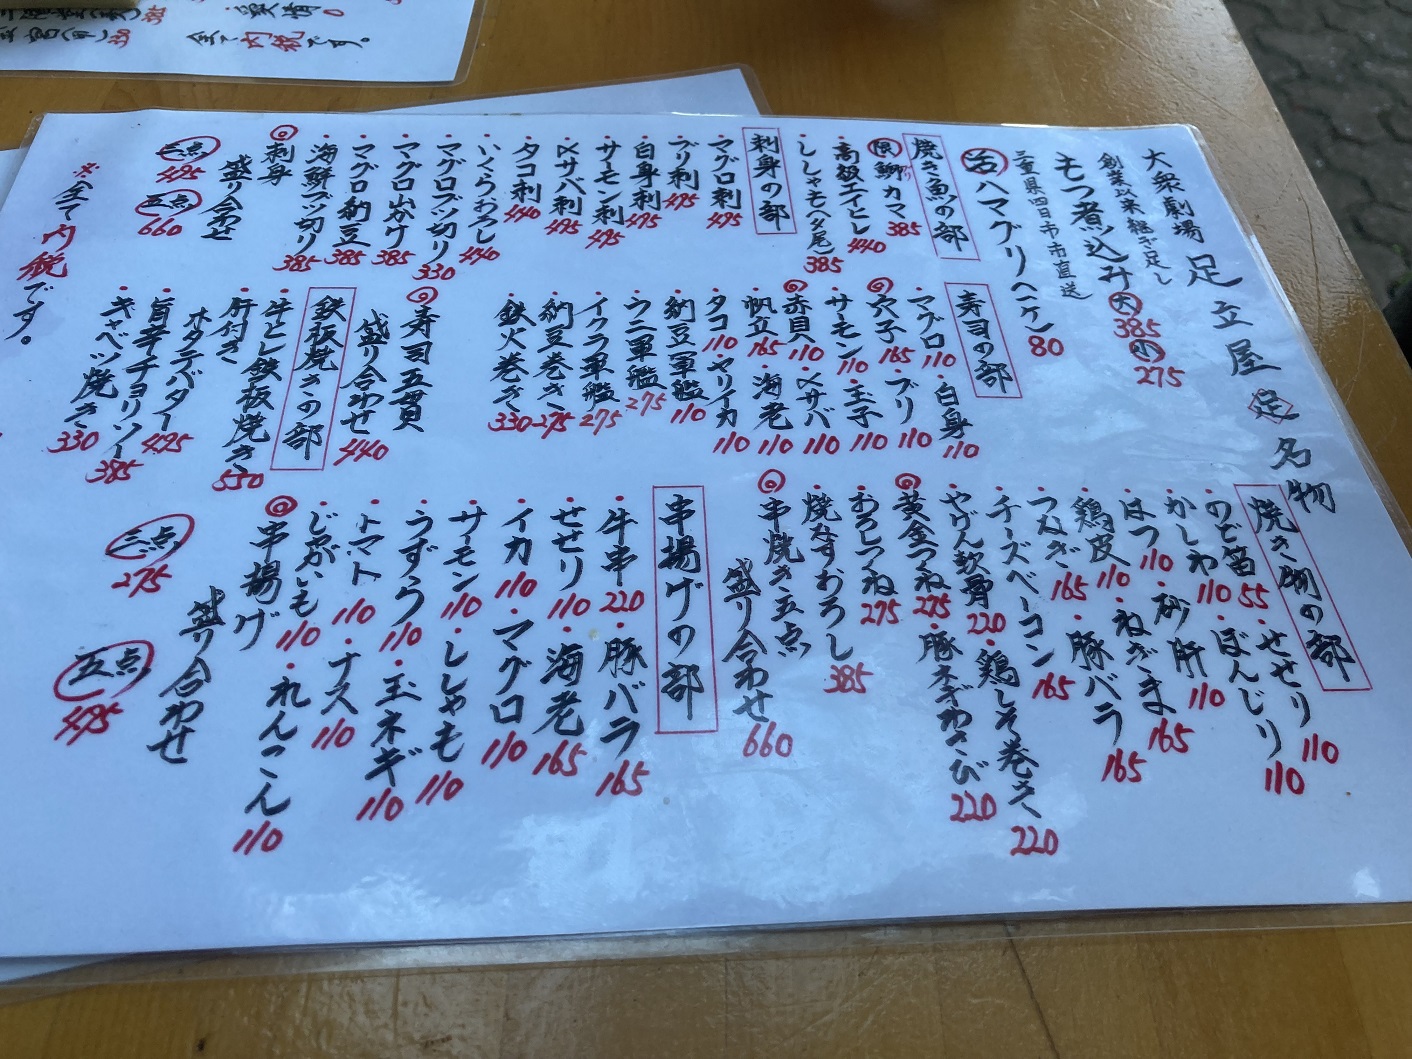 大衆劇場 足立屋 足 名物
創業以来継ぎ足し
もつ煮込み 大 385 小 275
三重県四日市市直送
活 ハマグリ(一ケ) 80
焼き魚の部
限 鰤カマ 385
・高級エイヒレ 440
・ししゃも(4尾) 385
刺身の部
・マグロ刺 495
・ブリ刺 495
・白身刺 495
・サーモン刺 495
・〆サバ刺 495
・タコ刺 440
・いくらおろし 440
・マグロブツ切り 330
・マグロ山かけ 385
・マグロ納豆 385
・海鮮ブツ切り 385
◎刺身
盛り合わせ
三点 495 五点 660
※全て内税です。
寿司の部
・マグロ 110 ・白身 110
◎穴子 165 ・ブリ 110
・サーモン 110 ・玉子 110
◎赤貝 110 ・〆サバ 110
・帆立 165 ・海老 110
・タコ 110 ・ヤリイカ 110
・納豆軍艦 110
・ウニ軍艦 275
・イクラ軍艦 275
・納豆巻き 275
・鉄火巻き 330
◎寿司五貫
盛り合わせ 440
鉄板焼きの部
・牛とし鉄板焼き 550
・肝付き
ホタテバター 495
・旨辛チョリソー 385
・キャベツ焼き 330
焼き物の部
・せせり 110
・のど笛 55 ・ぼんじり 110
・かしわ 110 ・砂肝 110
・はつ 110 ・ねぎま 165
・鶏皮 110 ・豚バラ 165
・つなぎ 165
・チーズベーコン 165
・やげん軟骨 220 ・鶏しそ巻き 220
◎黄金つくね 275 ・豚ネギわさび 220
・おろしつくね 275
・焼なすおろし 385
◎串焼き五点
盛り合わせ 660
串揚げの部
・牛串 220 ・豚バラ 165
・せせり 110 ・海老 165
・イカ 110 ・マグロ 110
・サーモン 110 ・ししゃも 110
・うずら 110 ・玉ネギ 110
・トマト 110 ・ナス 110
・じゃがいも 110 ・れんこん 110
◎串揚げ
盛り合わせ
三点 275 五点 495
全て内税です。